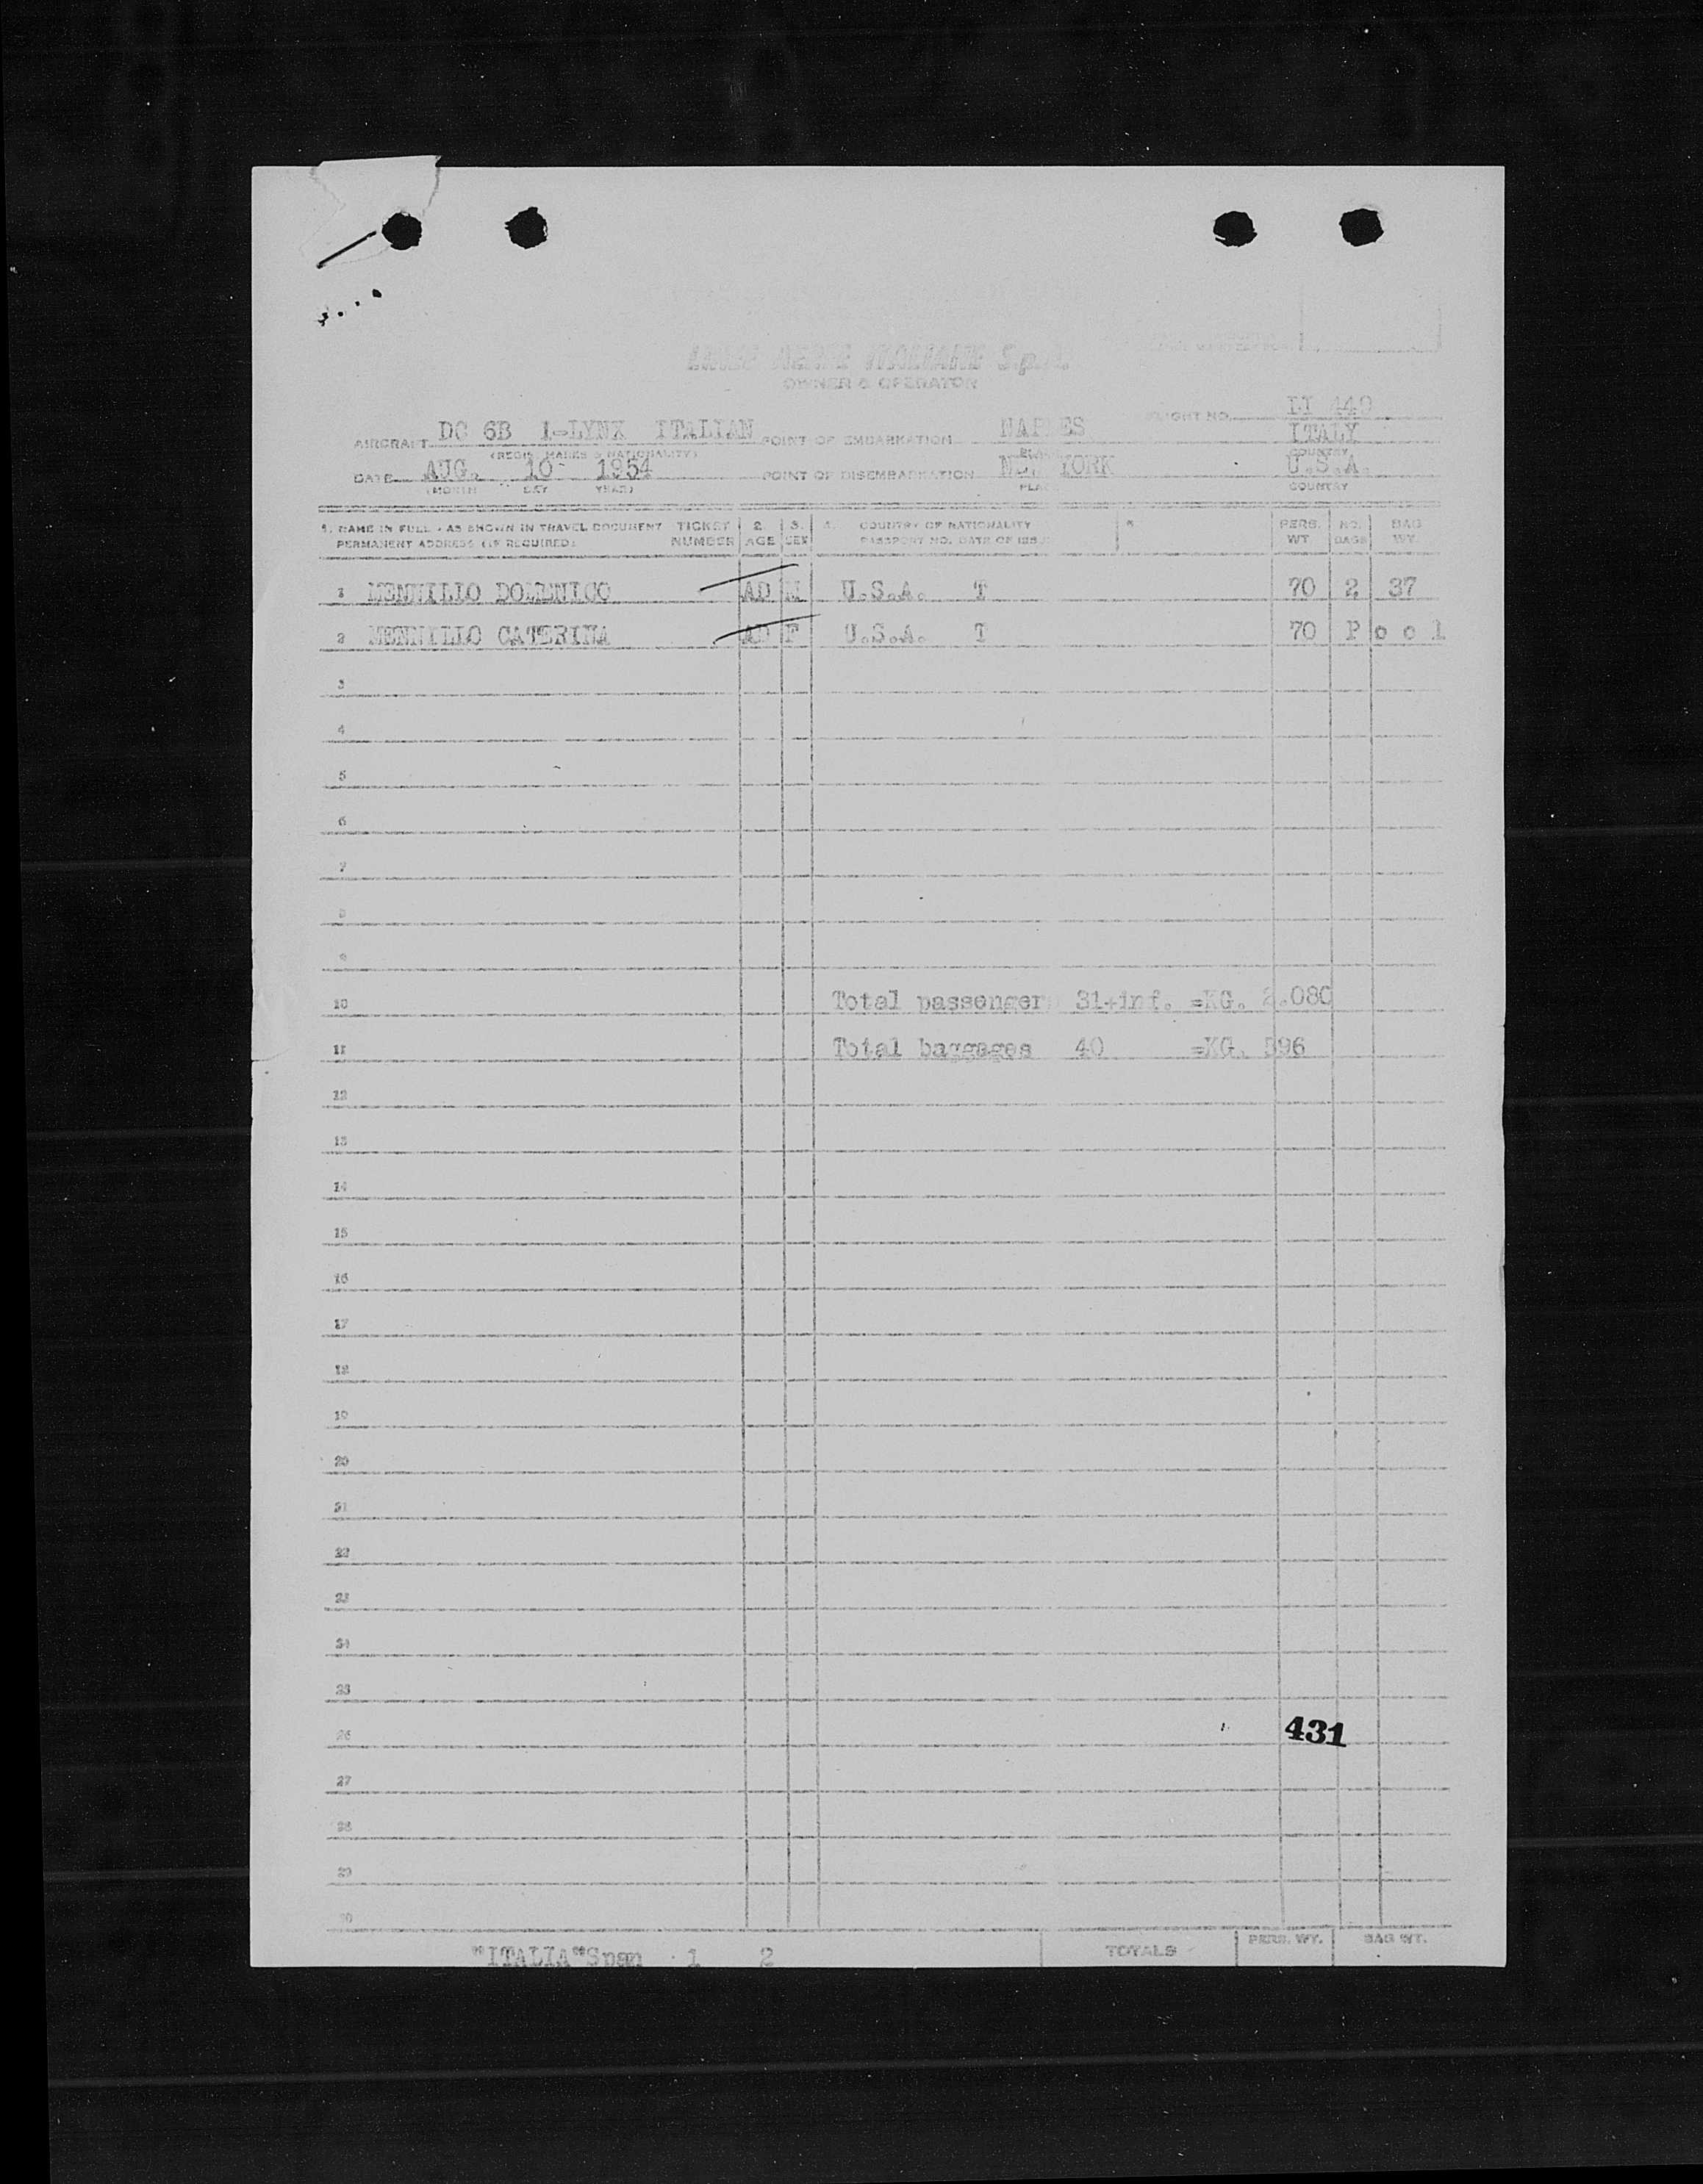 LINEE AEREE ITALIANE S.p.A.
OWNER & OPERATOR
FLIGHT NO. LI 440
AIRCRAFT DC 6B I-LYNX ITALIAN POINT OF EMBARKATION NAPLES ITALY
(REGIS. MARKS & NATIONALITY) PLACE COUNTRY
DATE AUG. 10 1954 POINT OF DISEMBARKATION NEW YORK U.S.A.
(MONTH DAY YEAR) PLACE COUNTRY
1. NAME IN FULL - AS SHOWN IN TRAVEL DOCUMENT TICKET 2. 3. 4. COUNTRY OF NATIONALITY PERS. NO. BAG
PERMANENT ADDRESS (IF REQUIRED) NUMBER AGE SEX PASSPORT NO. DATE OF ISSUE WT. BAGS WT.
1 MENNILLO DOMENICO AD M U.S.A. T 70 2 37
2 MENNILLO CATERINA AD F U.S.A. T 70 P o o l
3
4
5
6
7
8
9
10 Total passenger 31+inf. =KG. 2.080
11 Total baggages 40 =KG. 596
12
13
14
15
16
17
18
19
20
21
22
23
24
25
26 431
27
28
29
30
"ITALIA"Spen 1 2 TOTALS PERS. WT. BAG WT.